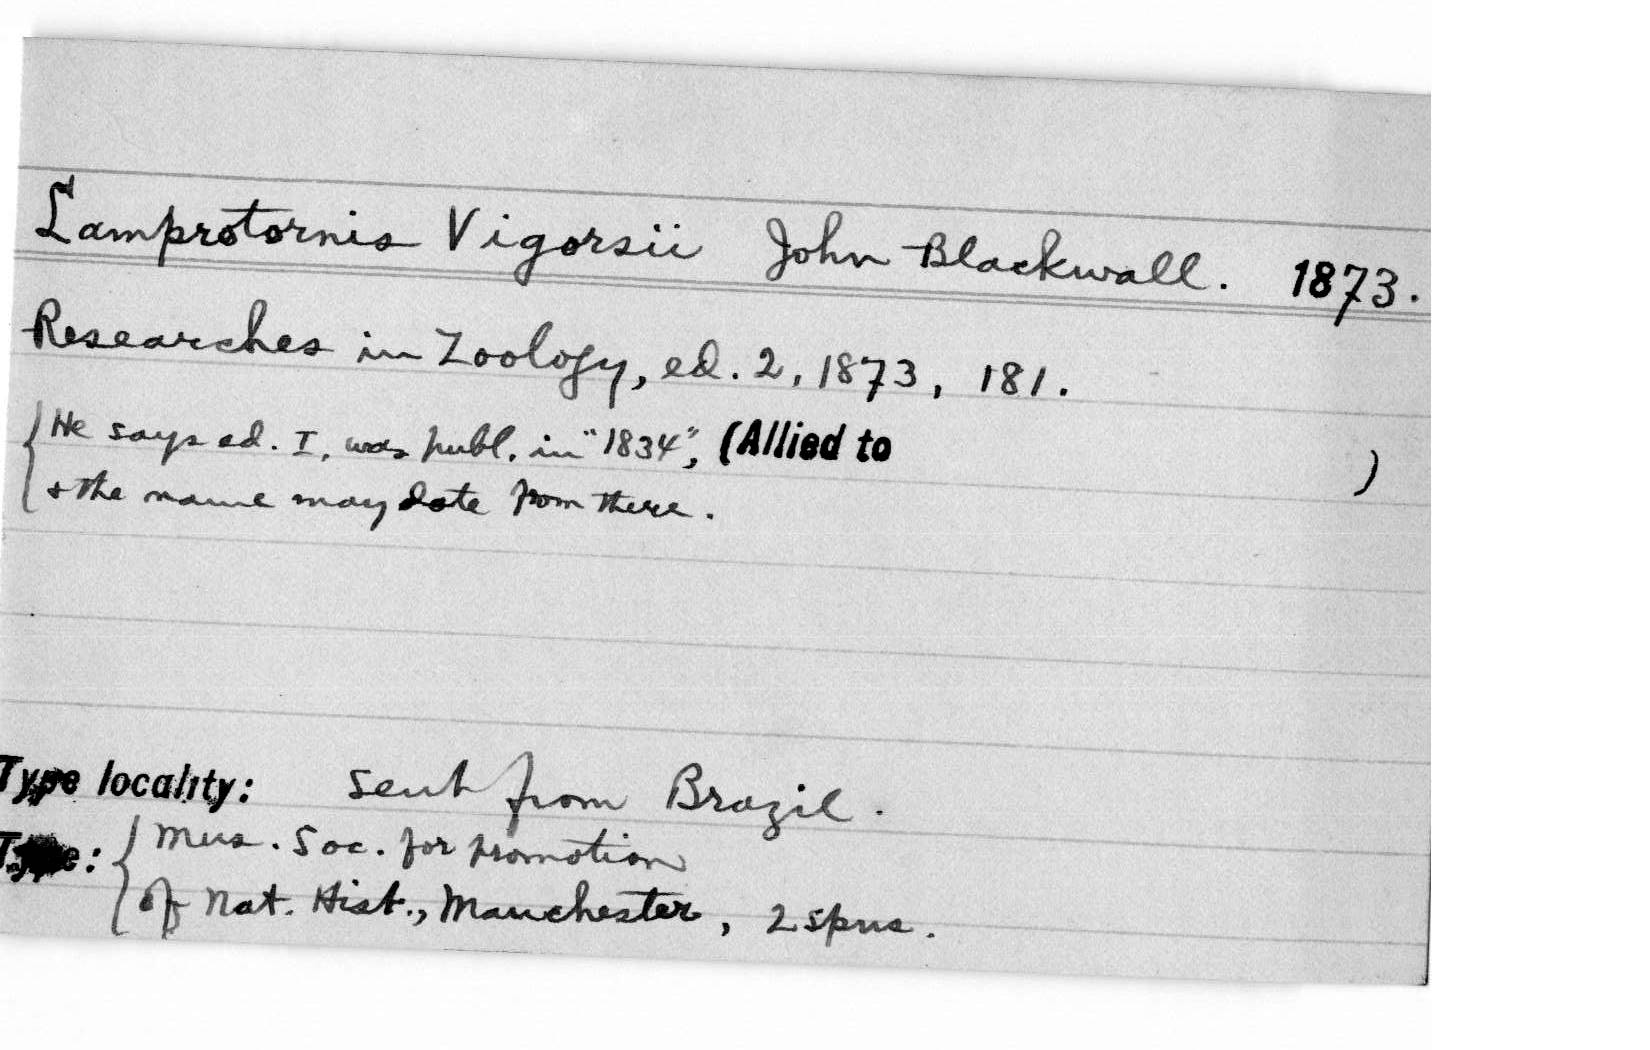 Lamprotornis Vigorsii John Blackwall. 1873.
Researches in Zoology, ed. 2, 1873, 181.
He says ed. I, was publ. in "1834", (Allied to )
+ the name may date from there.
Type locality: sent from Brazil.
Type: Mus. Soc. for promotion
of Nat. Hist., Manchester, 2 spns.